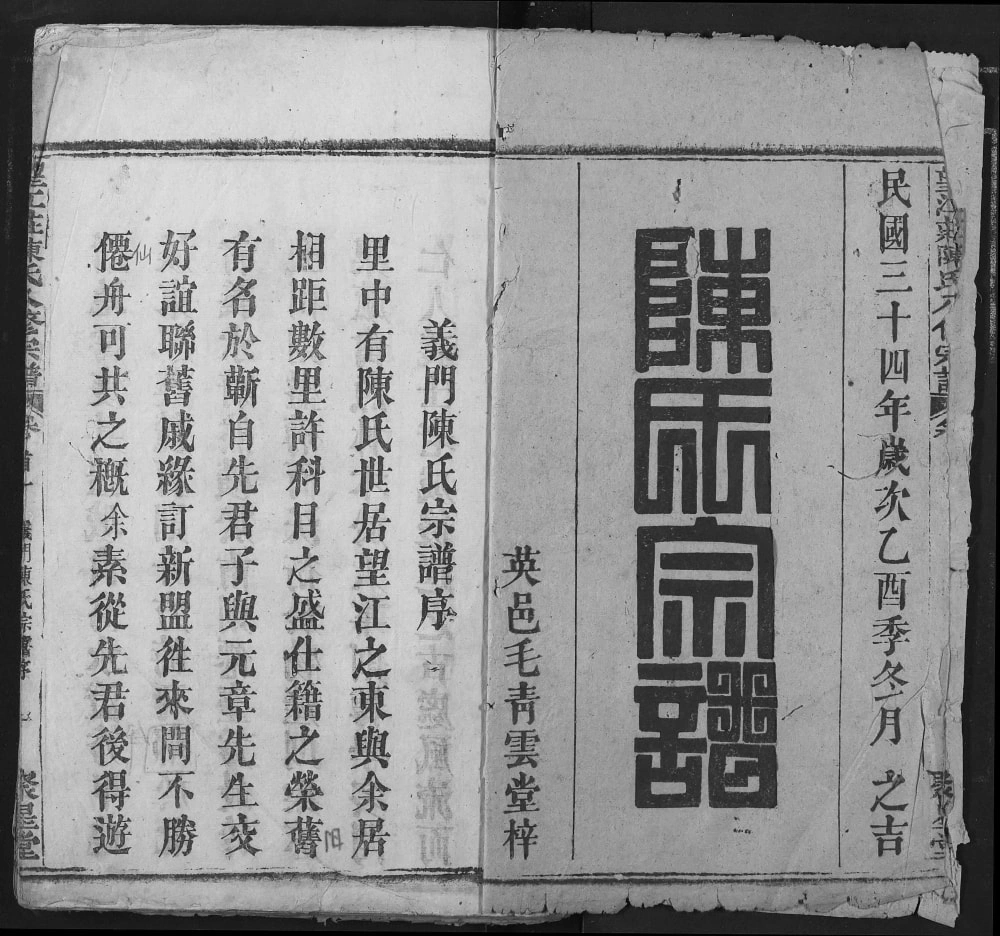 民國三十四年歲次乙酉季冬月之吉
陳氏宗譜
英邑毛青雲堂梓
義門陳氏宗譜序
里中有陳氏世居望江之東與余居
相距數里許科目之盛仕籍之榮舊
有名於蘄自先君子與元章先生交
好誼聯舊戚緣訂新盟徃來間不勝
僊舟可共之概余素從先君後得遊
仙
義門陳氏宗譜序
聚星堂